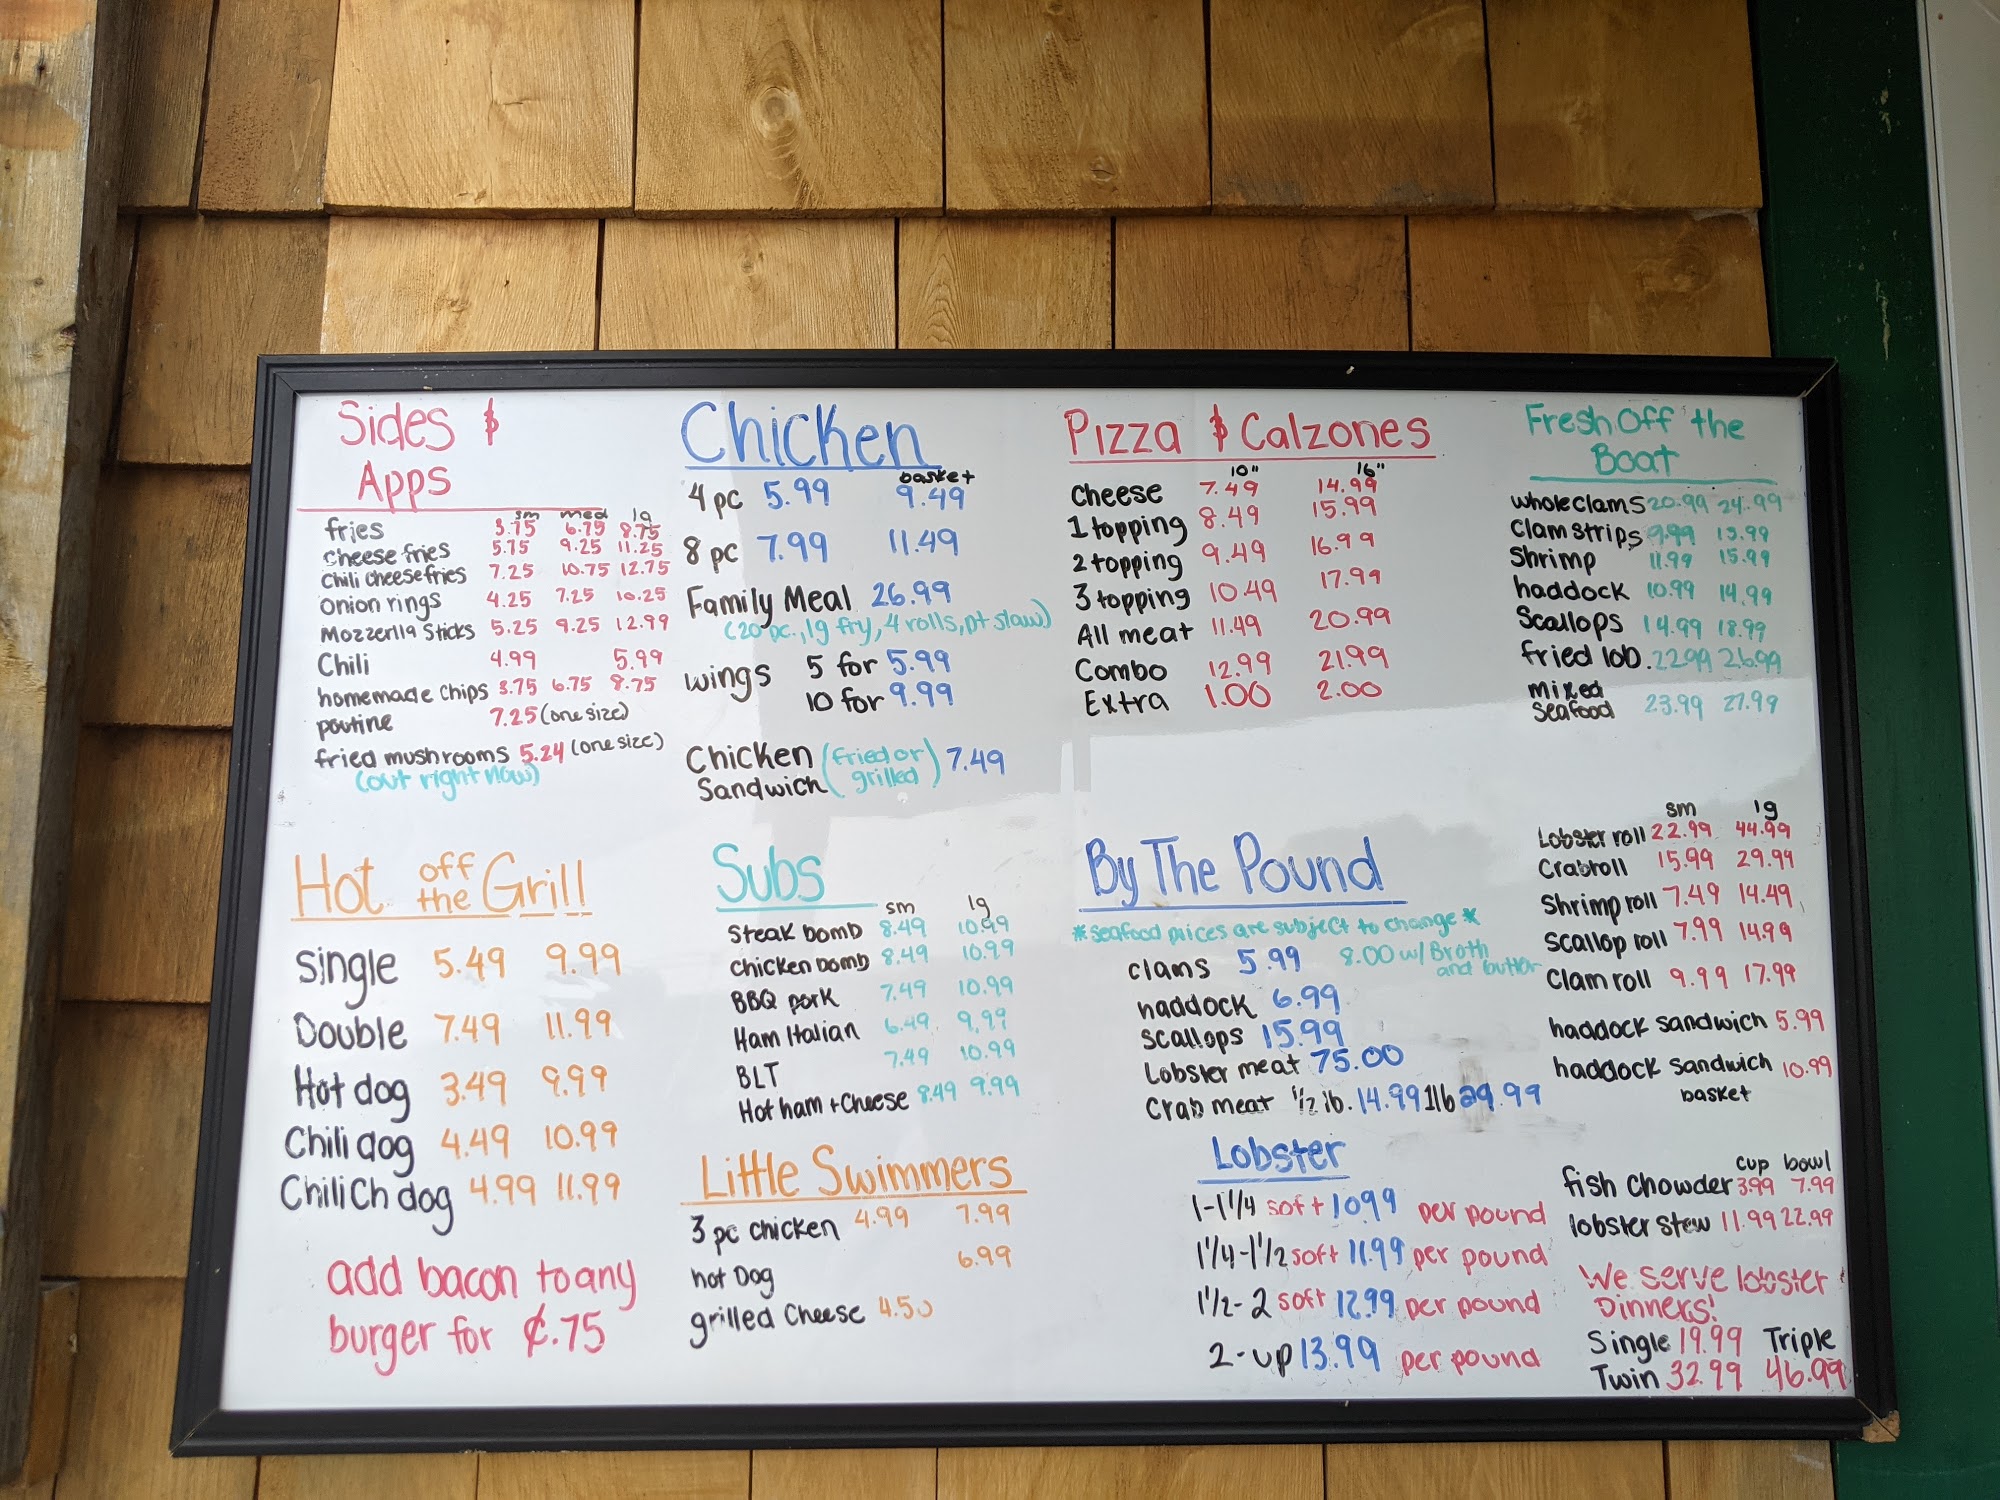 Sides &
Apps
sm med lg
fries 3.75 6.75 8.75
cheese fries 5.75 9.25 11.25
Chili cheese fries 7.25 10.75 12.75
Onion rings 4.25 7.25 10.25
Mozzerlla Sticks 5.25 9.25 12.99
Chili 4.99 5.99
homemade chips 3.75 6.75 8.75
poutine 7.25 (one size)
fried mushrooms 5.24 (one size)
(out right now)
Chicken
basket
4 pc 5.99 9.49
8 pc 7.99 11.49
Family Meal 26.99
(20 pc., lg fry, 4 rolls, pt slaw)
wings 5 for 5.99
10 for 9.99
Chicken (fried or 7.49
Sandwich grilled)
Pizza & Calzones
10" 16"
Cheese 7.49 14.99
1 topping 8.49 15.99
2 topping 9.49 16.99
3 topping 10.49 17.99
All meat 11.49 20.99
Combo 12.99 21.99
Extra 1.00 2.00
Fresh Off the
Boat
whole clams 20.99 24.99
Clam strips 9.99 13.99
Shrimp 11.99 15.99
haddock 10.99 14.99
Scallops 14.99 18.99
fried lob. 22.99 26.99
mixed
seafood 23.99 27.99
Hot off the Grill
single 5.49 9.99
Double 7.49 11.99
Hot dog 3.49 9.99
Chili dog 4.49 10.99
Chili Ch dog 4.99 11.99
add bacon to any
burger for ¢.75
Subs
sm lg
Steak bomb 8.49 10.99
Chicken bomb 8.49 10.99
BBQ pork 7.49 10.99
Ham Italian 6.49 9.99
BLT 7.49 10.99
Hot ham + Cheese 8.49 9.99
Little Swimmers
3 pc chicken 4.99 7.99
hot Dog 6.99
grilled Cheese 4.50
By The Pound
*seafood prices are subject to change*
clams 5.99 8.00 w/ Broth
and butter
haddock 6.99
Scallops 15.99
Lobster meat 75.00
Crab meat 1/2 lb. 14.99 1 lb 29.99
Lobster
1-1 1/4 soft 10.99 per pound
1 1/4-1 1/2 soft 11.99 per pound
1 1/2-2 soft 12.99 per pound
2-up 13.99 per pound
sm lg
Lobster roll 22.99 44.99
Crab roll 15.99 29.99
Shrimp roll 7.49 14.49
Scallop roll 7.99 14.99
Clam roll 9.99 17.99
haddock sandwich 5.99
haddock sandwich 10.99
basket
cup bowl
fish chowder 3.99 7.99
lobster stew 11.99 22.99
We serve lobster
Dinners!
Single 19.99 Triple
Twin 32.99 46.99